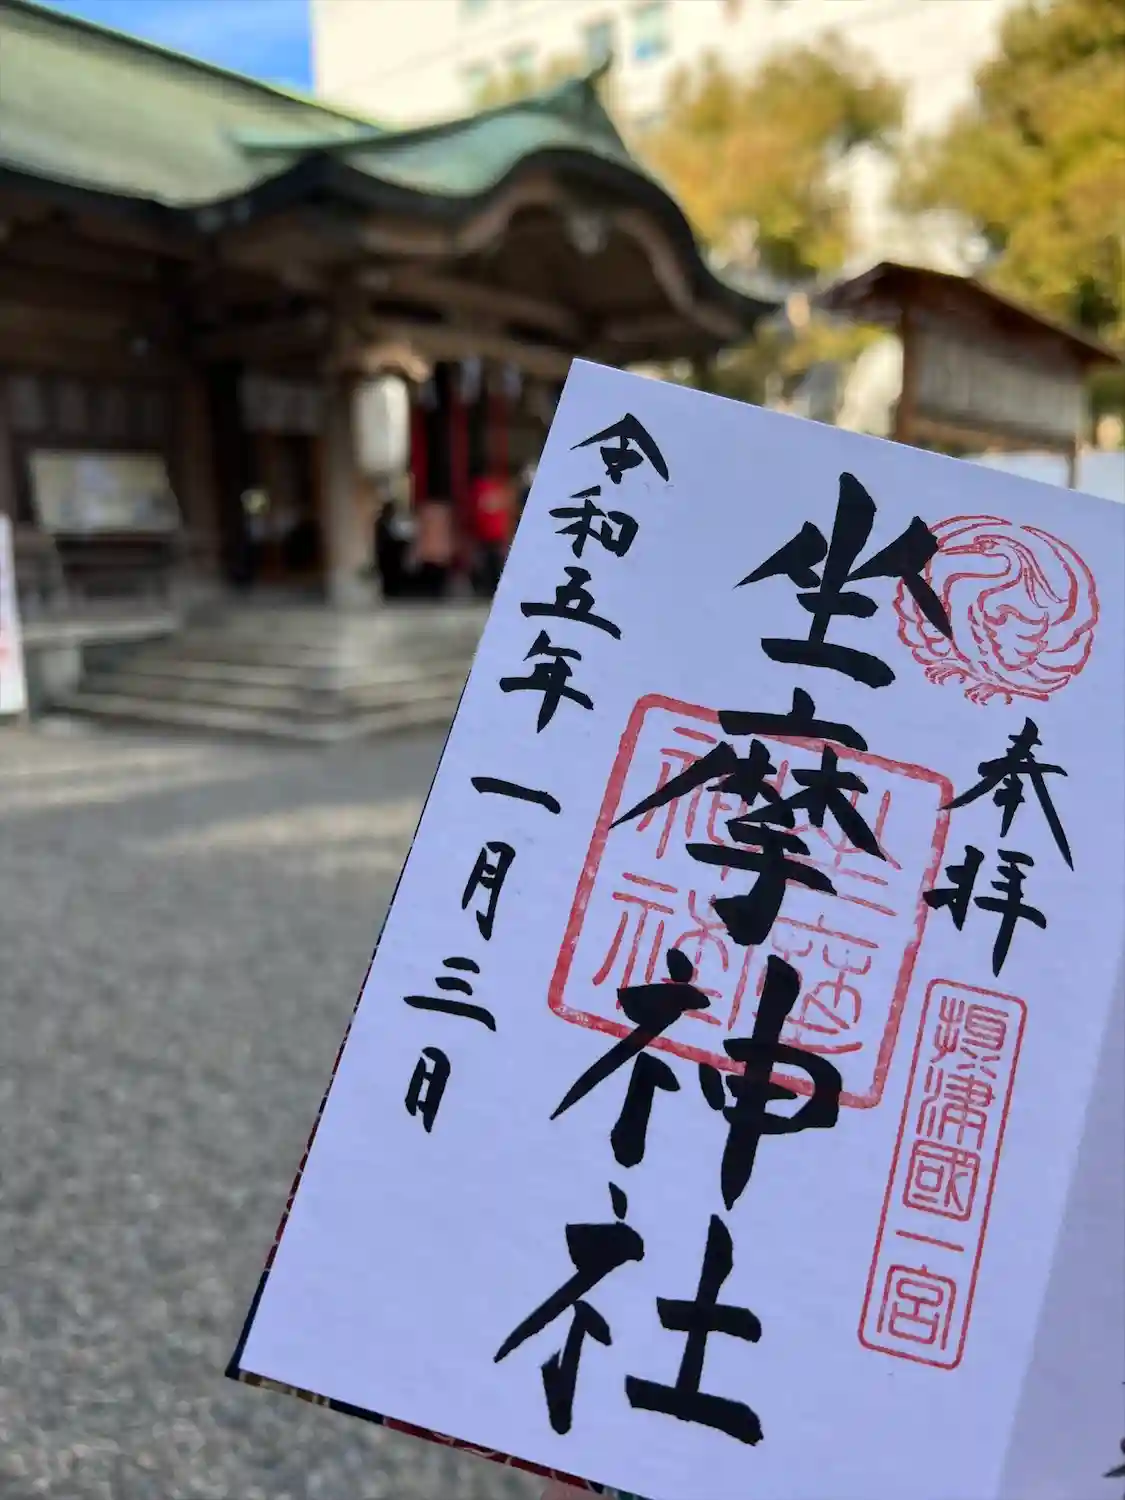 奉拝
攝津國一宮
坐摩神社
坐摩
神社
令和五年一月三日